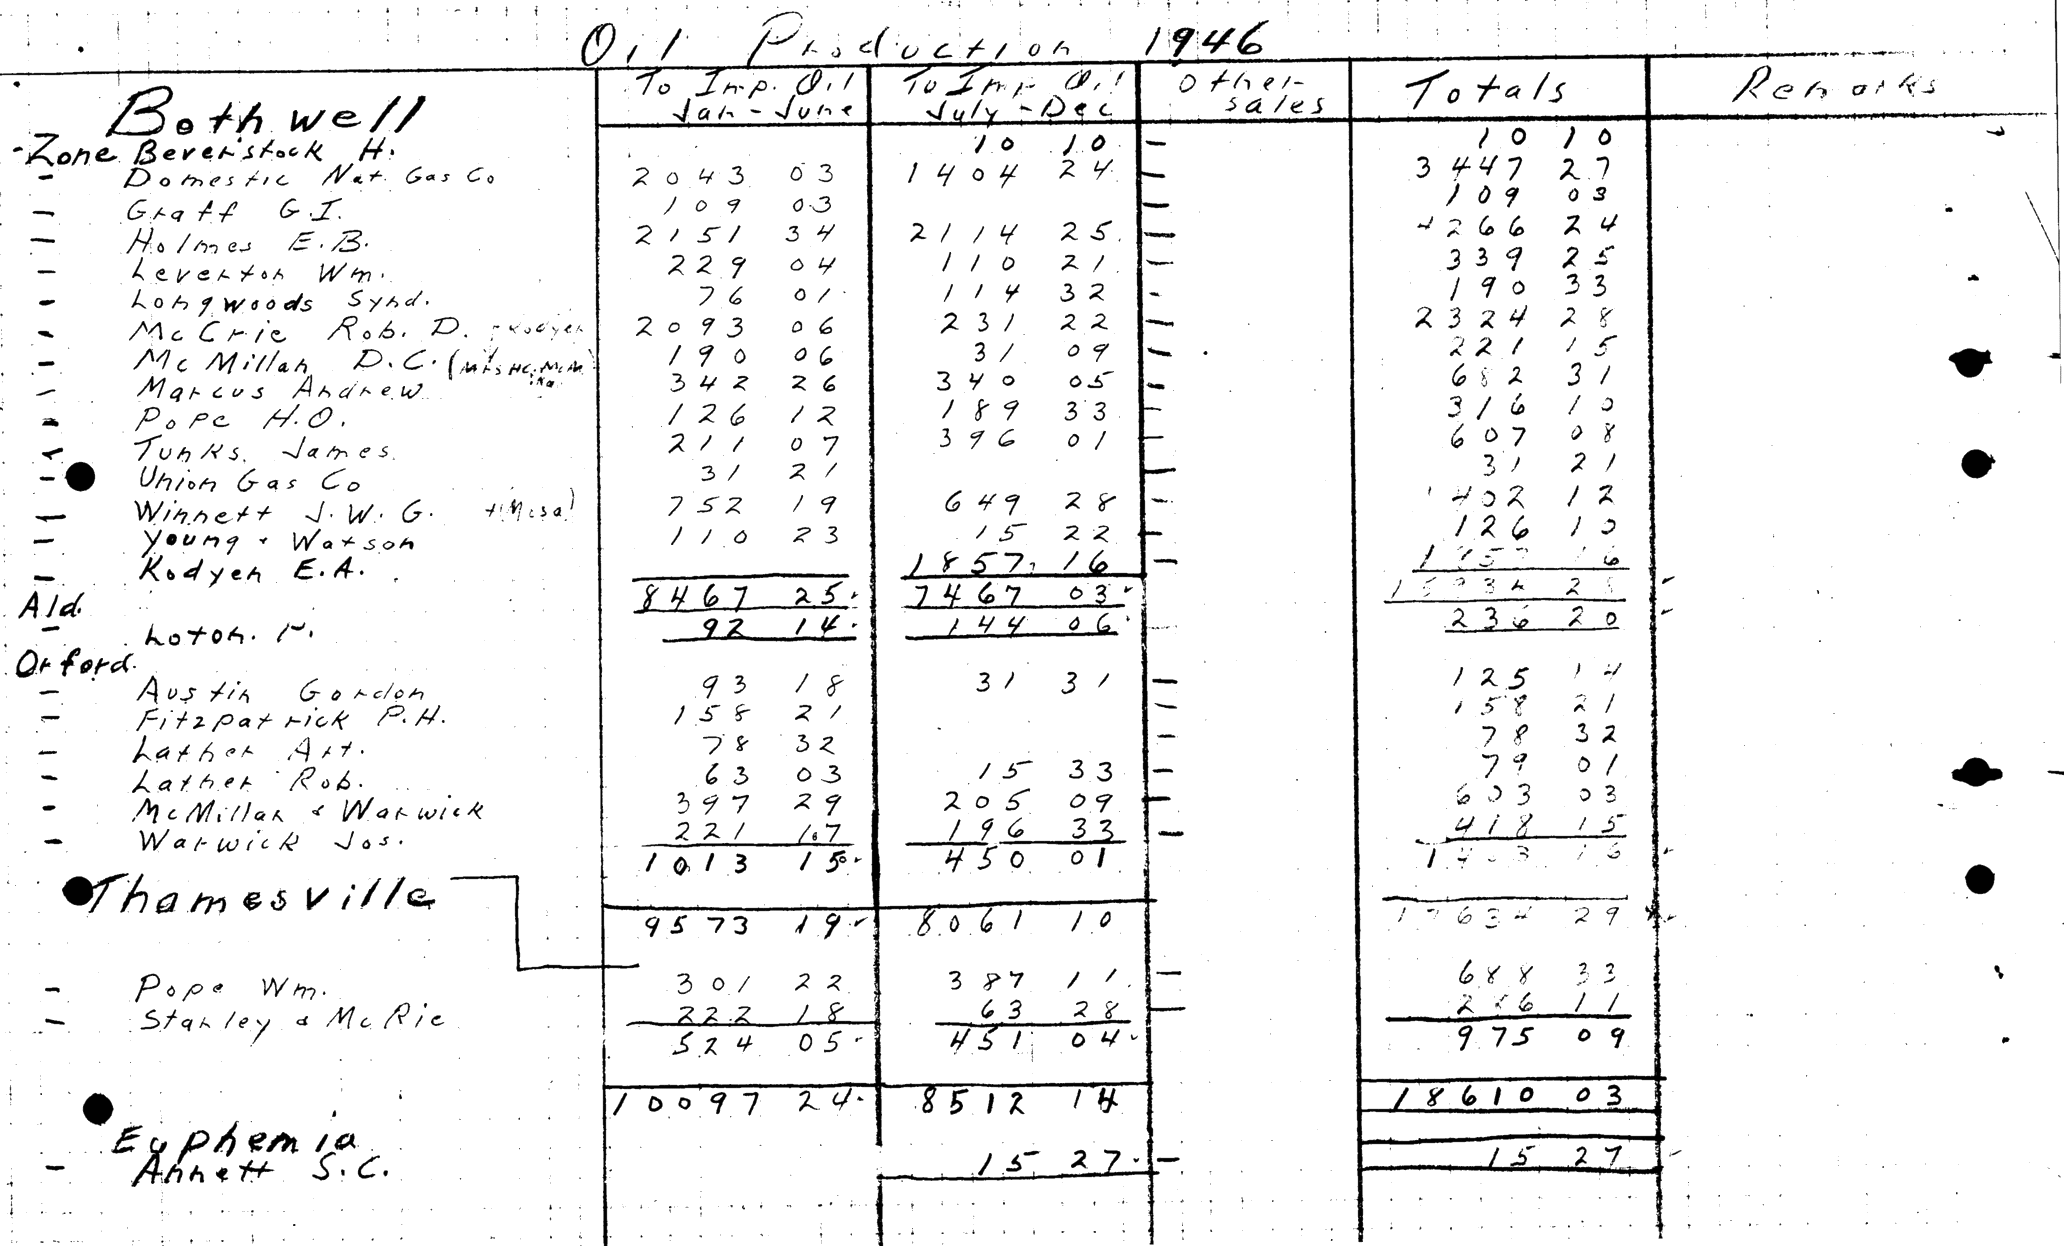 Oil Production 1946
To Imp. Oil Jan-June To Imp Oil July-Dec Other sales Totals Remarks
Bothwell
Zone Beverstock H. 10 10 - 10 10
- Domestic Nat. Gas Co 2043 03 1404 24 - 3447 27
- Graff G.I. 109 03 - 109 03
- Holmes E.B. 2151 34 2114 25 - 4266 24
- Leverton Wm. 229 04 110 21 - 339 25
- Longwoods Synd. 76 01 114 32 - 190 33
- McCrie Rob. D. 2093 06 231 22 - 2324 28
- McMillan D.C. (Mrs 190 06 31 09 - 221 15
- Marcus Andrew 342 26 340 05 - 682 31
- Pope H.O. 126 12 189 33 - 316 10
- Tunks James 211 07 396 01 - 607 08
- Union Gas Co 31 21 - 31 21
- Winnett J.W.G. + Mosa) 752 19 649 28 - 1402 12
- Young & Watson 110 23 15 22 - 126 10
- Kodyen E.A. 1857 16 - 1857 16
8467 25 7467 03
Ald.
- Loton. 92 14 144 06 236 20
Orford.
- Austin Gordon 93 18 31 31 - 125 14
- Fitzpatrick P.H. 158 21 - 158 21
- Lather Art. 78 32 - 78 32
- Lather Rob. 63 03 15 33 - 79 01
- McMillan & Warwick 397 29 205 09 - 603 03
- Warwick Jos. 221 17 196 33 - 418 15
1013 15 450 01 1463 16
Thamesville
9573 19 8061 10 17634 29
- Pope Wm. 301 22 387 11 - 688 33
- Stanley & McRie 222 18 63 28 - 286 11
524 05 451 04 975 09
10097 24 8512 14 18610 03
Euphemia
- Annett S.C. 15 27 - 15 27